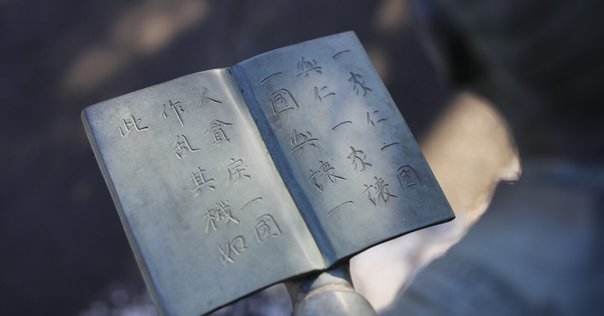 一家仁一國
興仁一家讓
一國興讓一
人貪戾一國
作乱其機如
此